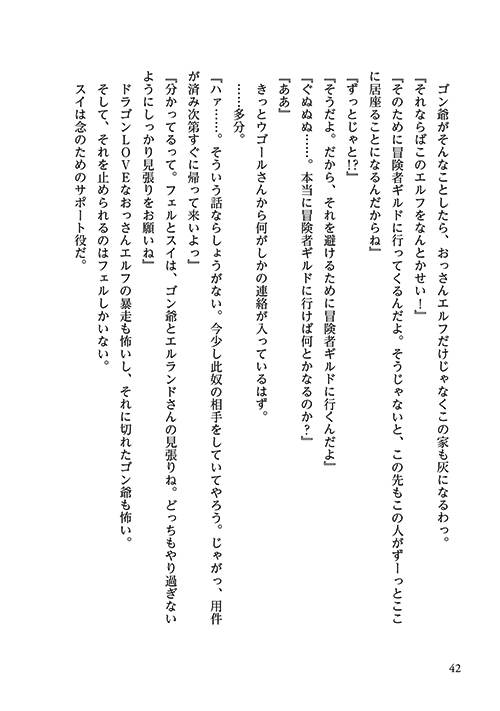 ゴン爺がそんなことしたら、おっさんエルフだけじゃなくこの家も灰になるわっ。
『それならばこのエルフをなんとかせい！』
『そのために冒険者ギルドに行ってくるんだよ。そうじゃないと、この先もこの人がずーっとここ
に居座ることになるんだからね』
『ずっとじゃと!?』
『そうだよ。だから、それを避けるために冒険者ギルドに行くんだよ』
『ぐぬぬぬ……。本当に冒険者ギルドに行けば何とかなるのか？』
『ああ』
きっとウゴールさんから何がしかの連絡が入っているはず。
……多分。
『ハァ……。そういう話ならしょうがない。今少し此奴の相手をしていてやろう。じゃがっ、用件
が済み次第すぐに帰って来いよっ』
『分かってるって。フェルとスイは、ゴン爺とエルランドさんの見張りね。どっちもやり過ぎない
ようにしっかり見張りをお願いね』
ドラゴンＬＯＶＥなおっさんエルフの暴走も怖いし、それに切れたゴン爺も怖い。
そして、それを止められるのはフェルしかいない。
スイは念のためのサポート役だ。
42